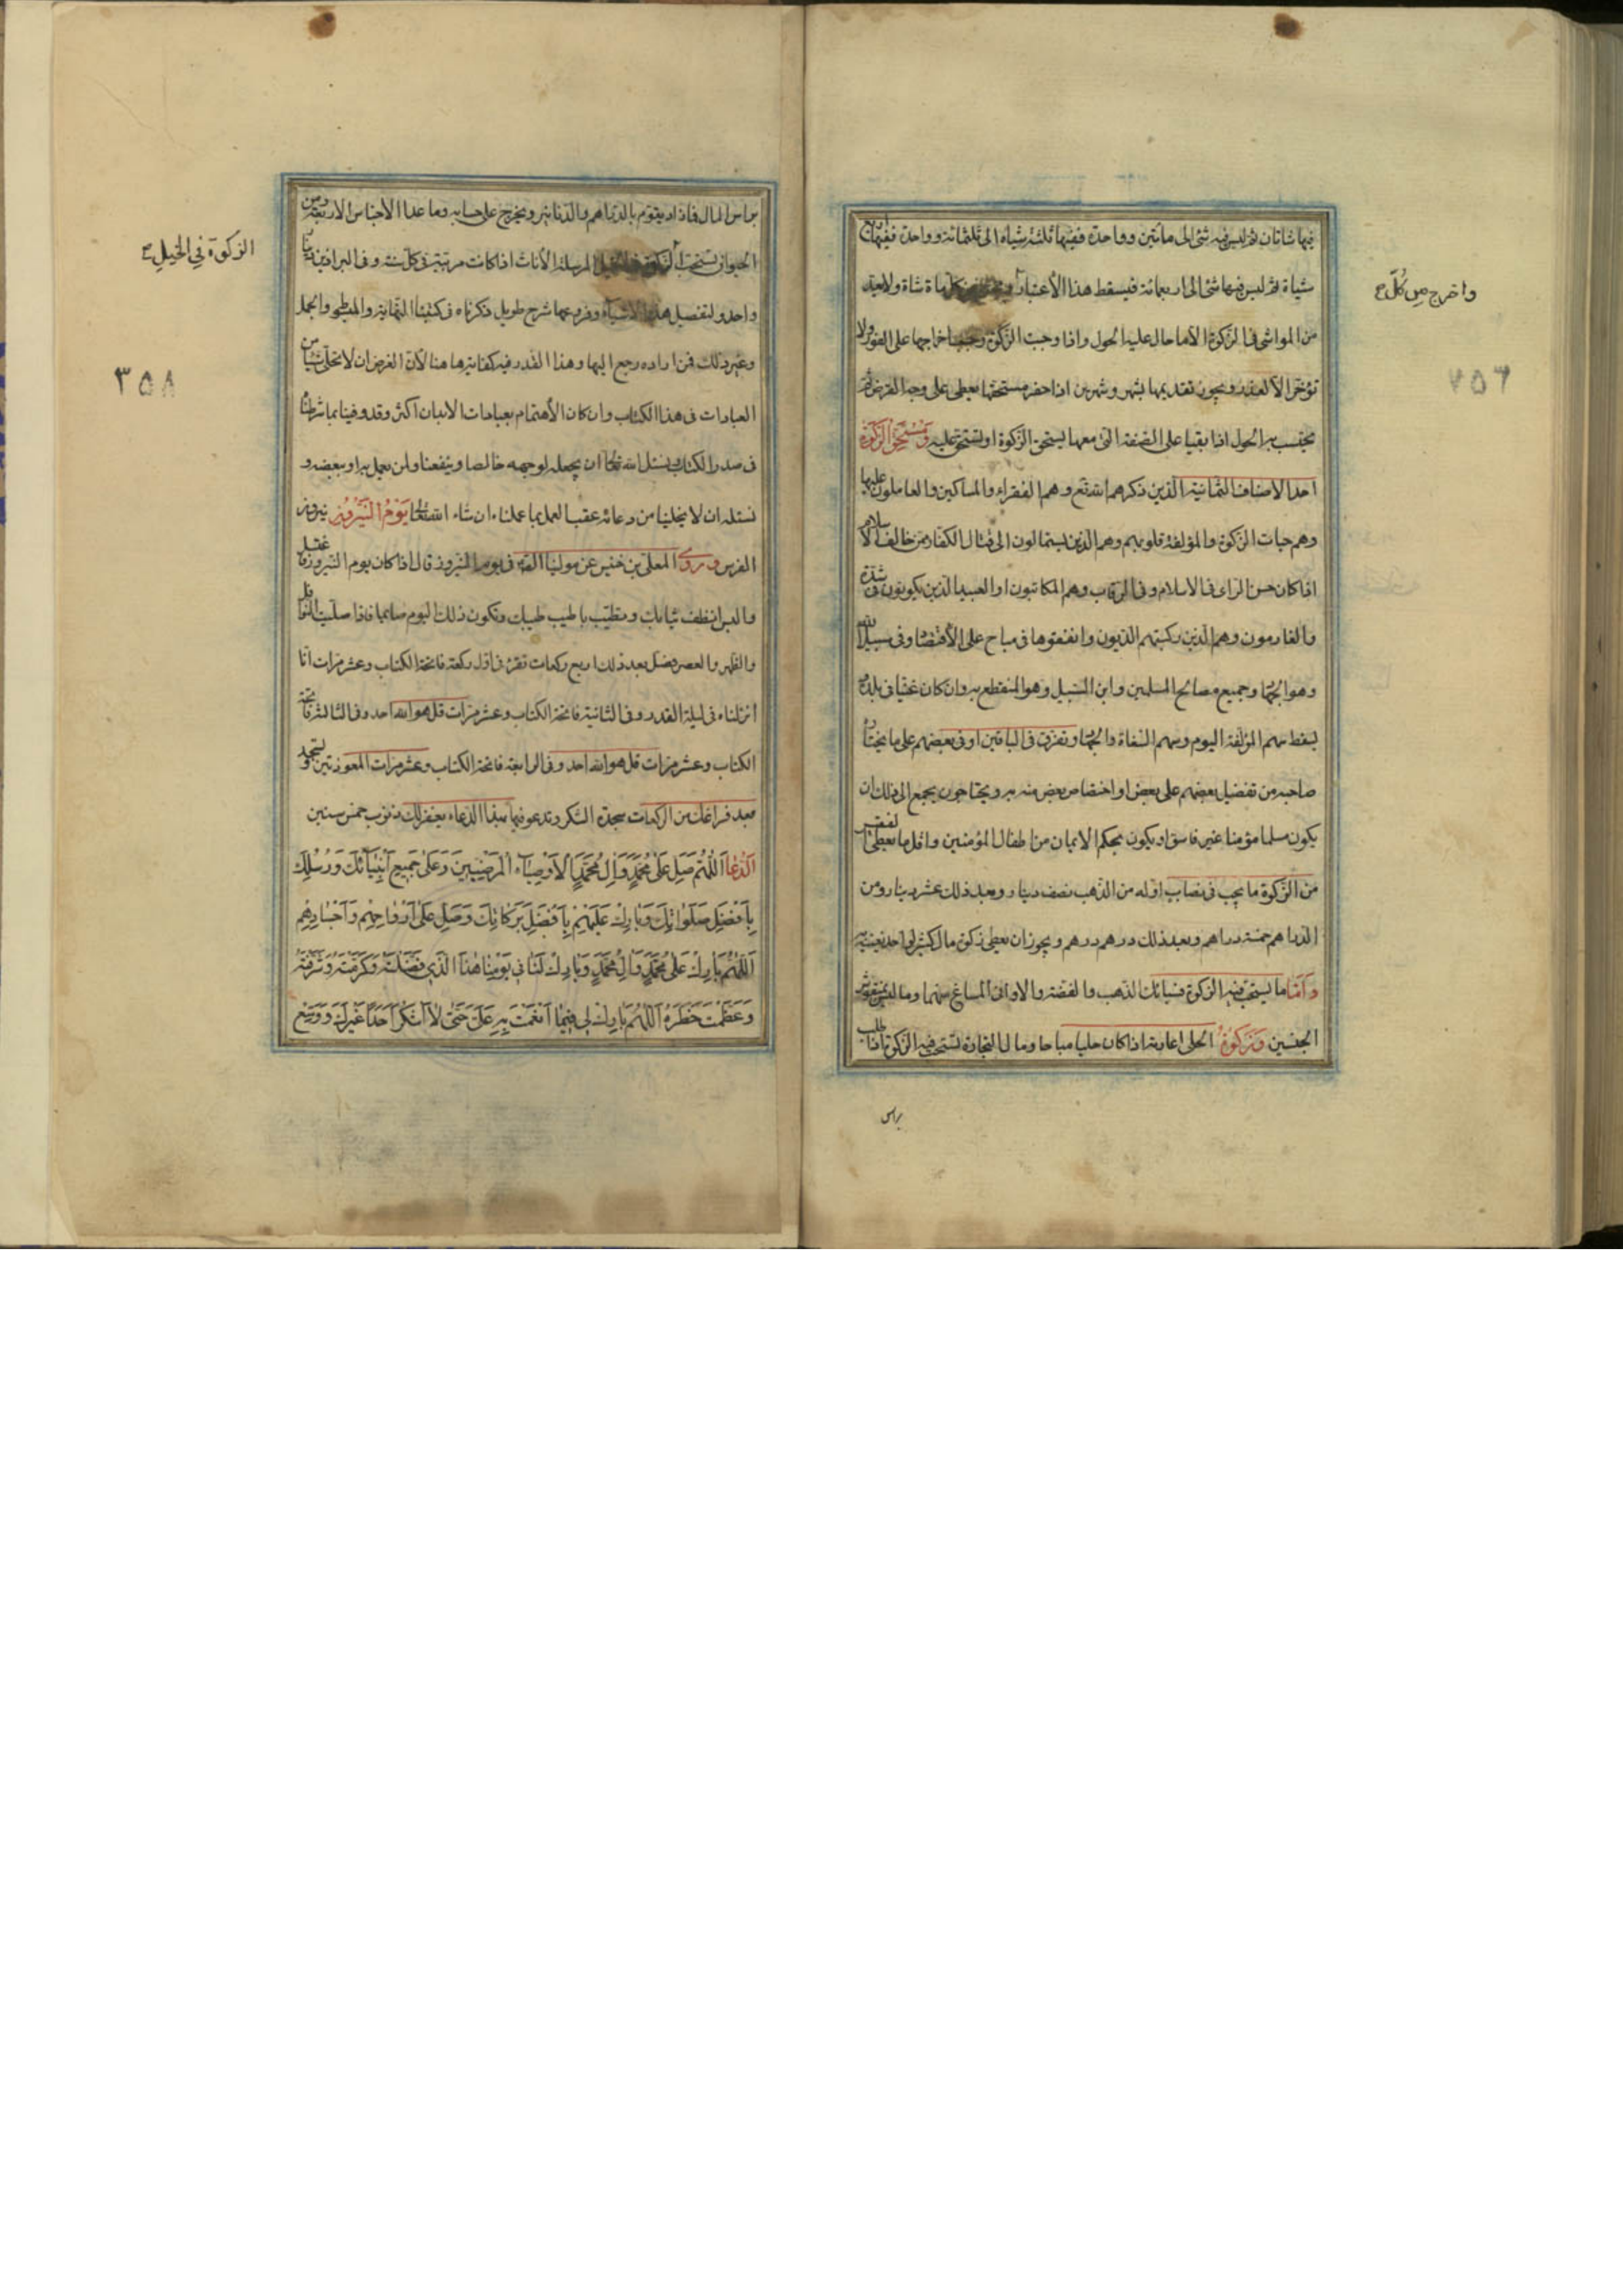 فيها شاتان ثم ليس فيه شئ الى مأتين وواحدة ففيها ثلثة شياه الى ثلثمائة وواحدة ففيها اربع
شياة ثم ليس فيها شئ الى اربعمائة فيسقط هذا الأعتبار مائة شاة ولا يعد
واخرج من كلّ
من المواشى فى الزكوة الا ما حال عليه الحول واذا وجبت الزكوة وجب اخراجها على الفور ولا
تؤخر الا لعذر ويجوز تقديمها بشهر وشهرين اذا حضر مستحقها يعطى على وجه القرض ثم
٧٥٦
يحتسب به الحول اذا بقيا على الصفة التى معها يستحق الزكوة او تستحق عليه ومستحق الزكوة
احد الاصناف الثمانية الذين ذكرهم الله تع وهم الفقراء والمساكين والعاملون عليها
وهم جبات الزكوة والمؤلفة قلوبهم وهم الذين يستمالون الى قتال الكفار من خالف الاسلام
اذا كان حسن الراى فى الاسلام وفى الرقاب وهم المكاتبون او العبيد الذين يكونون فى شدة
والغارمون وهم الذين ركبتهم الديون وانفقوها فى مباح على الأقتصاد وفى سبيل الله
وهو الجهاد وجميع مصالح المسلمين وابن السبيل وهو المنقطع به وان كان غنيا فى بلده
يسقط سهم المؤلفة اليوم وسهم السعاة والجهاد وتفرق فى الباقين او فى بعضهم على ما يختار
صاحبه من تفضيل بعضهم على بعض او اختصاص بعض منه به ويحتاجون يجمع الى ذلك ان
يكون مسلما مؤمنا غير فاسق او يكون بحكم الايمان من اطفال المؤمنين واقل ما يعطى الفقير
من الزكوة ما يجب فى نصاب اوله من الذهب نصف دينار وبعد ذلك عشر دينار ومن
الدراهم خمسة دراهم وبعد ذلك درهم درهم ويجوز ان يعطى زكوة مال كثير لواحد يغنيه به
وامّا ما يستحب فيه الزكوة فسبائك الذهب والفضة والاوانى المصاغ منهما وما ليس بمنقوش
الجنسين وزكوة الحلى اعارته اذا كان حليا مباحا ومال التجارة تستحب فيه الزكوة اذا طلب
براس
براس المال فما زاد يقوم بالدراهم والدنانير ويخرج على حسابه وما عدا الأجناس الاربعة ومن
الحيوان تستحب الزكوة فى الخيل المرسلة الأناث اذا كانت مرتبته فى كل سنة وفى البراذين دينار
الزكوة فى الخيل
واحد ولتفصيل هذه الاشياء وفروعها شرح طويل ذكرناه فى كتبنا النهاية والمبسوط والجمل
وغير ذلك فمن اراده رجع اليها وهذا القدر فيه كفاية ها هنا لأن الغرض ان لا نخلى شيئا من
٣٥٨
العبادات فى هذا الكتاب وان كان الأهتمام بعبادات الابدان اكثر وقد وفينا بما شرطنا
فى صدر الكتاب ونسئل الله تعالى ان يجعله لوجهه خالصا وينفعنا ولمن يعمل به او ببعضه و
نسئله ان لا يخلينا من دعائه عقيب العمل بما عملناه ان شاء الله تعالى يوم النيروز نيروز
الفرس وروى المعلى بن خنيس عن مولينا الصادق فى يوم النيروز قال اذا كان يوم النيروز فاغتسل
والبس انظف ثيابك وتطيب باطيب طيبك وتكون ذلك اليوم صايما فاذا صليت النوافل
والظهر والعصر فصل بعد ذلك اربع ركعات تقرء فى اول ركعة فاتحة الكتاب وعشر مرات انا
انزلناه فى ليلة القدر وفى الثانية فاتحة الكتاب وعشر مرات قل هو الله احد وفى الثالثة فاتحة
الكتاب وعشر مرات قل هو الله احد وفى الرابعة فاتحة الكتاب وعشر مرات المعوذتين وتسجد
بعد فراغك من الركعات سجدة الشكر وتدعو فيها بهذا الدعاء يغفر لك ذنوب خمس سنين
الدعا اَللّهُمَّ صَلِّ عَلى مُحَمَّدٍ وَآلِ مُحَمَّدٍ الأَوْصِيَاءِ الْمَرْضِيِّينَ وَعَلى جَمِيعِ اَنْبِيَائِكَ وَرُسُلِكَ
بِاَفْضَلِ صَلَوَاتِكَ وَبَارِكْ عَلَيْهِمْ بِاَفْضَلِ بَرَكَاتِكَ وَصَلِّ عَلى اَرْوَاحِهِمْ وَاَجْسَادِهِمْ
اَللّهُمَّ بَارِكْ عَلى مُحَمَّدٍ وَآلِ مُحَمَّدٍ وَبَارِكْ لَنَا فِى يَوْمِنَا هذَا الَّذِى فَضَّلْتَهُ وَكَرَّمْتَهُ وَشَرَّفْتَهُ
وَعَظَّمْتَ خَطَرَهُ اَللّهُمَّ بَارِكْ لِى فِيمَا اَنْعَمْتَ بِهِ عَلَىَّ حَتّى لاَ اَشْكُرَ اَحَدًا غَيْرَكَ وَوَسِّعْ